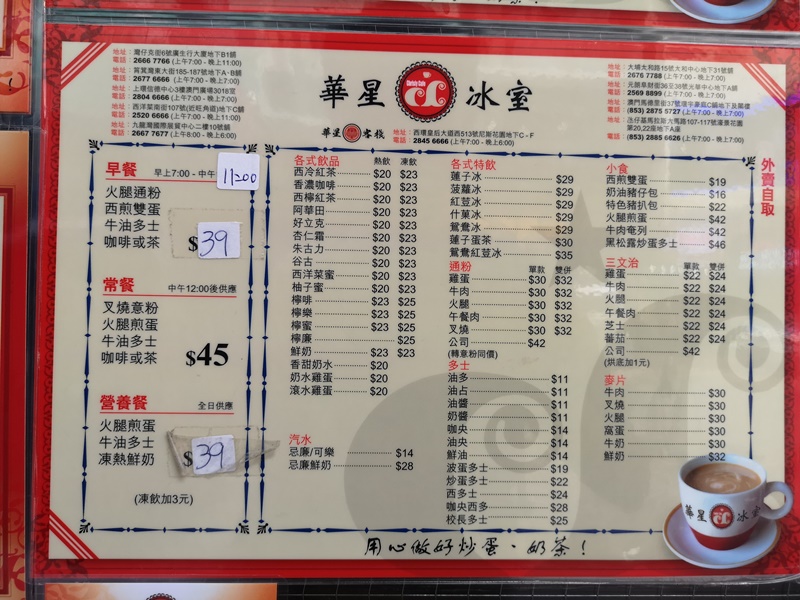 地址：灣仔克街6號廣生行大廈地下B1舖
電話：2666 7766 (上午7:00 - 晚上11:00)
地址：筲箕灣東大街185-187號地下A-B舖
電話：2677 6666 (上午7:00 - 晚上7:00)
地址：上環信德中心3樓澳門廣場301B室
電話：2804 6666 (上午7:00 - 晚上7:00)
地址：西洋菜南街107號(近旺角道)地下C舖
電話：2520 6666 (上午7:00 - 晚上11:00)
地址：九龍灣國際展貿中心二樓10號舖
電話：2667 7677 (上午8:00 - 晚上6:00)
華星 冰室
華星 客棧
地址：西環皇后大道西513號尼斯花園地下C - F
電話：2845 6666 (上午7:00 - 晚上7:00)
地址：大埔太和路15號太和中心地下31號舖
電話：2676 7788 (上午7:00 - 晚上7:00)
電話：2569 8899 (上午7:00 - 晚上7:00)
電話：(853) 2875 8727 (上午7:00 - 晚上7:00)
第20,22座地下A座
電話：(853) 2885 6626 (上午7:00 - 晚上7:00)
外賣自取
早餐 早上7:00 - 中午 11:00
火腿通粉
西煎雙蛋
牛油多士
咖啡或茶 $39
常餐 中午12:00後供應
叉燒意粉
火腿煎蛋
牛油多士
咖啡或茶 $45
營養餐 全日供應
火腿煎蛋
牛油多士
凍熱鮮奶 $39
(凍飲加3元)
各式飲品 熱飲 凍飲
西冷紅茶 $20 $23
香濃咖啡 $20 $23
西檸紅茶 $20 $23
阿華田 $20 $23
好立克 $20 $23
杏仁霜 $20 $23
朱古力 $20 $23
谷古 $20 $23
西洋菜蜜 $20 $23
柚子蜜 $20 $23
檸啡 $23 $25
檸樂 $23 $25
檸蜜 $23 $25
檸廉 $25
鮮奶 $23 $23
香甜奶水 $20
奶水雞蛋 $20
滾水雞蛋 $20
汽水
忌廉/可樂 $14
忌廉鮮奶 $28
各式特飲
蓮子冰 $29
菠蘿冰 $29
紅荳冰 $29
什菓冰 $29
鴛鴦冰 $29
蓮子蛋茶 $30
鴛鴦紅荳冰 $35
通粉 單款 雙併
雞蛋 $30 $32
牛肉 $30 $32
火腿 $30 $32
午餐肉 $30 $32
叉燒 $30 $32
公司 $42
(轉意粉同價)
多士
油多 $11
油占 $11
油醬 $11
奶醬 $11
咖央 $14
油央 $14
鮮油 $14
波蛋多士 $19
炒蛋多士 $22
西多士 $24
咖央西多 $28
校長多士 $25
小食
西煎雙蛋 $19
奶油豬仔包 $16
特色豬扒包 $22
火腿煎蛋 $42
牛肉奄列 $42
黑松露炒蛋多士 $46
三文治 單款 雙併
雞蛋 $22 $24
牛肉 $22 $24
火腿 $22 $24
午餐肉 $22 $24
芝士 $22 $24
蕃茄 $22 $24
公司 $42
(烘底加1元)
麥片
牛肉 $30
叉燒 $30
火腿 $30
窩蛋 $30
牛奶 $30
鮮奶 $32
華星 冰室
用心做好炒蛋、奶茶！